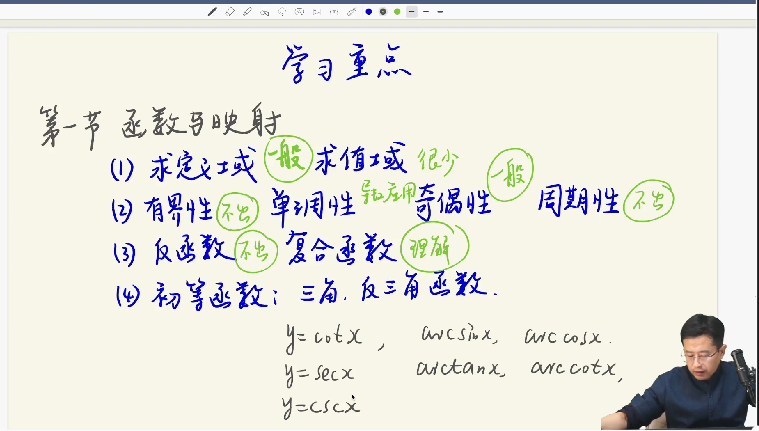 学习重点
第一节 函数与映射
(1) 求定义域 一般 求值域 很少
(2) 有界性 不出 单调性 导数应用 奇偶性 一般 周期性 不出
(3) 反函数 不出 复合函数 理解
(4) 初等函数: 三角. 反三角函数.
y=cotx , arcsinx, arccosx.
y=secx arctanx, arccotx,
y=cscx